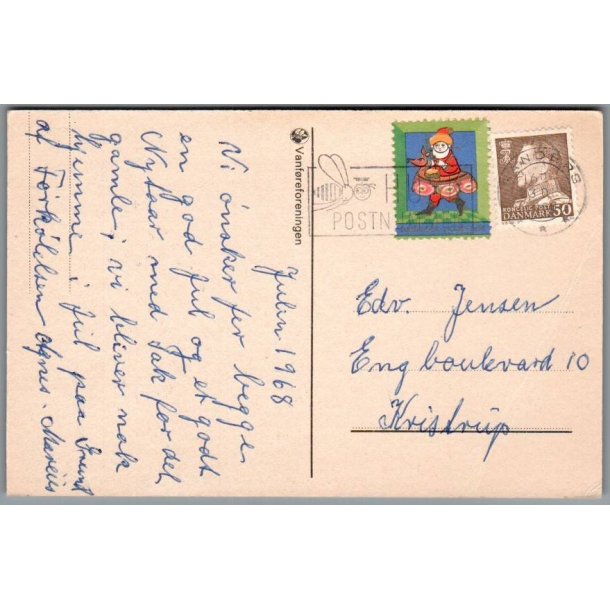 Julen 1968
Vi ønsker fer begge
en god Jul og et godt
Nytaar med Tak for det
gamle, vi bliver nok
hjemme i Jul paa Grund
af Forkølelsen Agnes. Marius
Vanføreforeningen
POSTN
KONGELIG POST
DANMARK 50
Edv. Jensen
Engboulevard 10
Kristrup